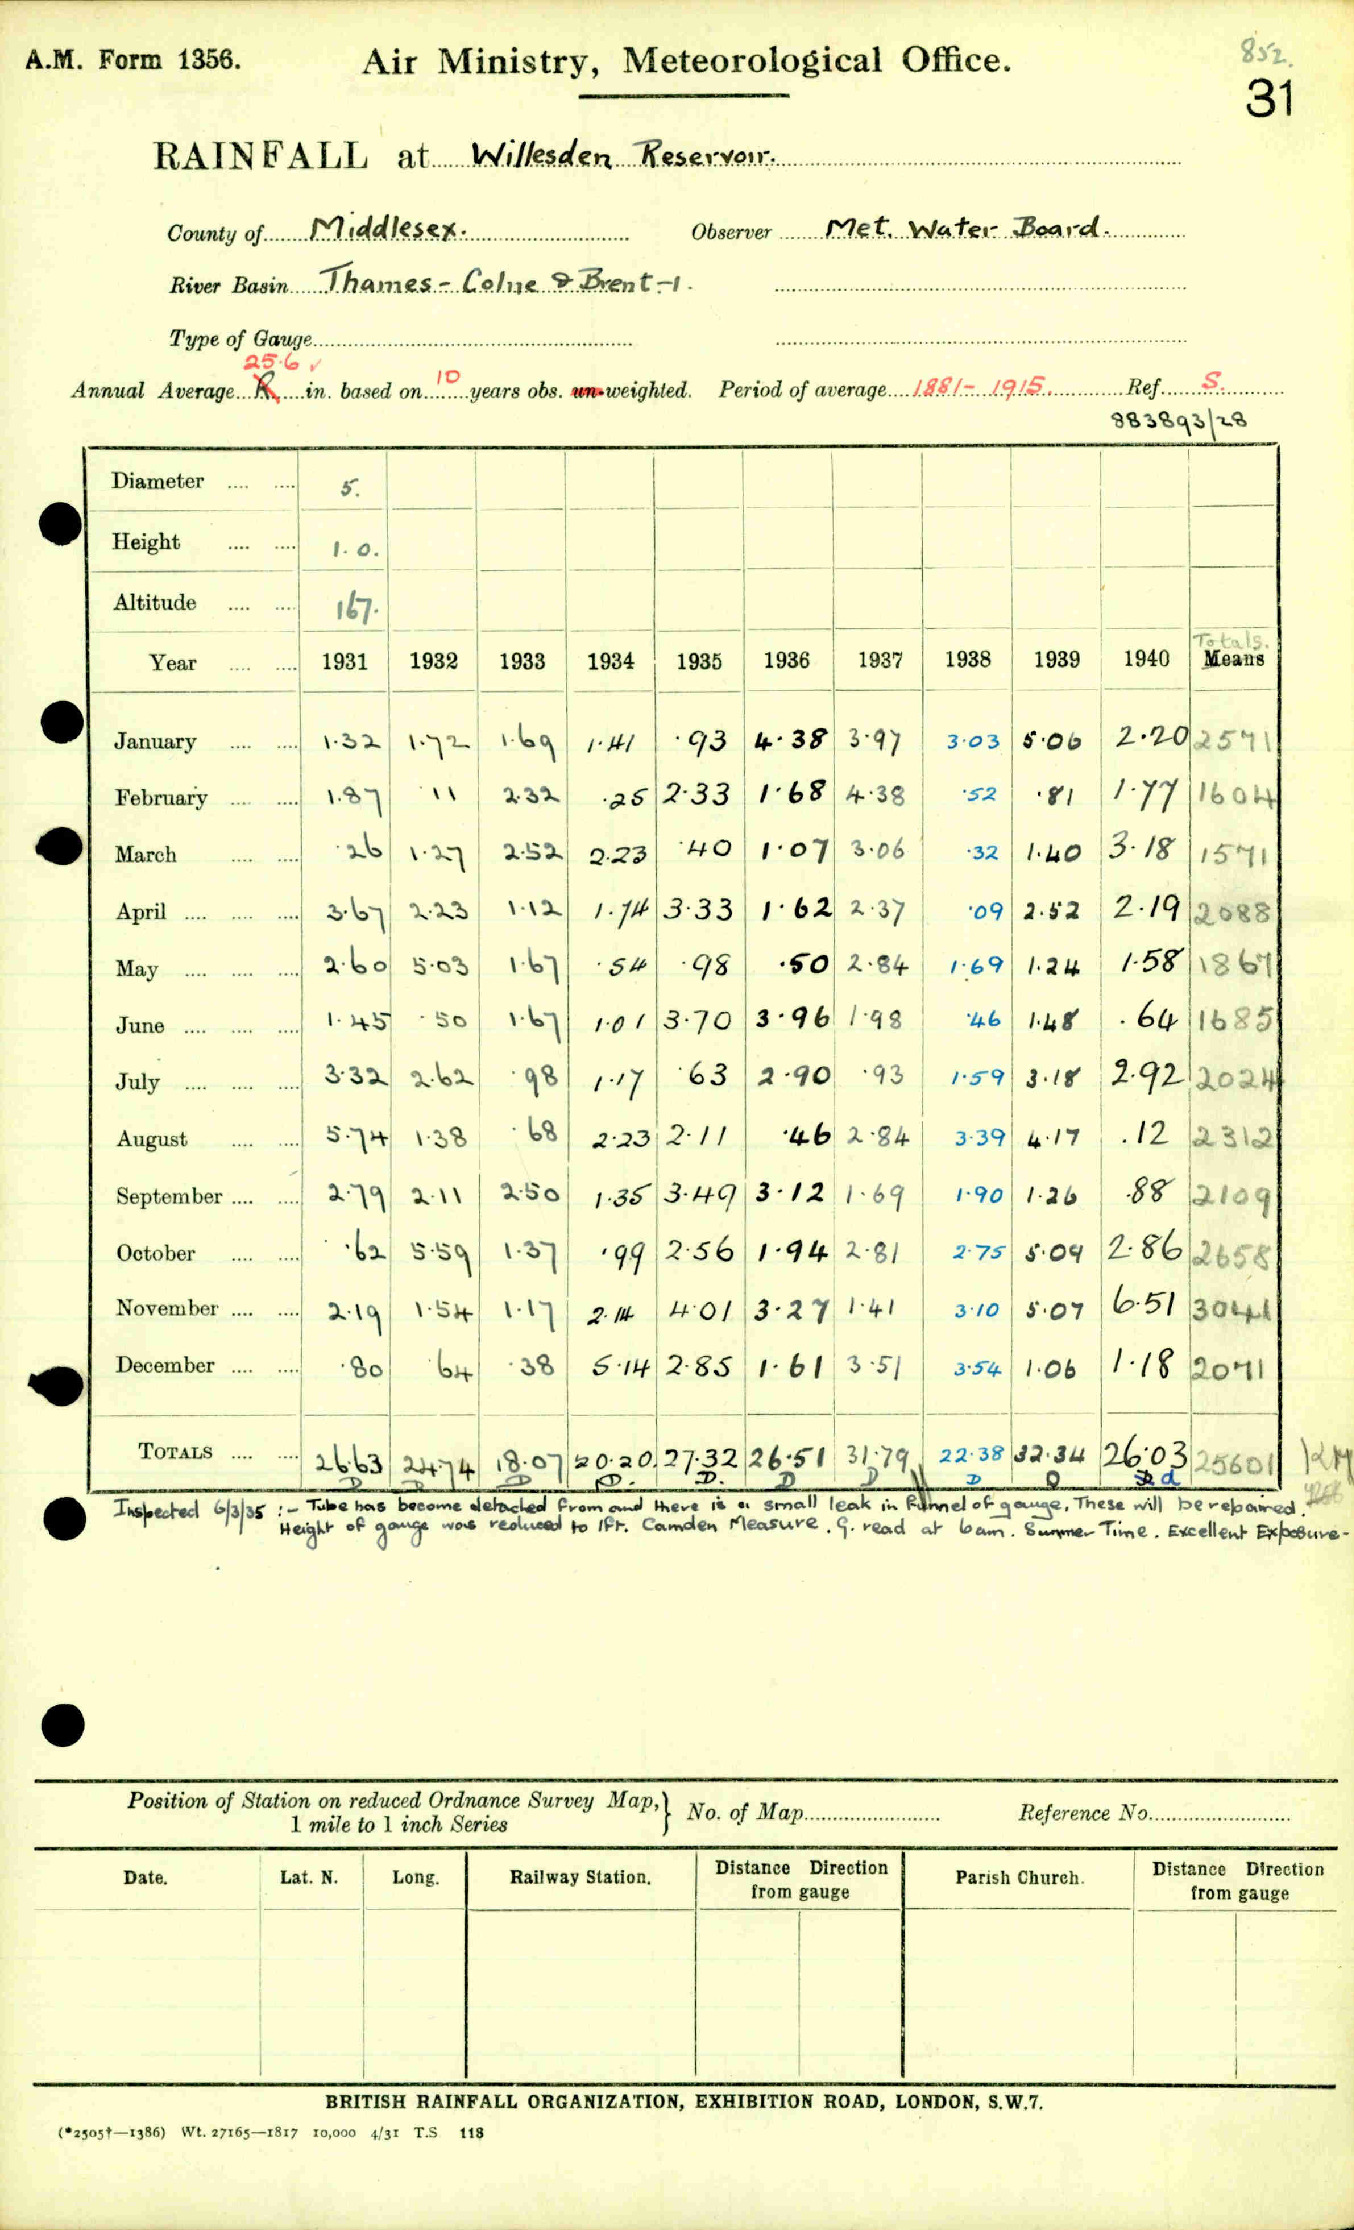 A.M. Form 1356. Air Ministry, Meteorological Office. 852.
31
RAINFALL at Willesden Reservoir.
County of Middlesex. Observer Met. Water Board.
River Basin Thames - Colne & Brent -1.
Type of Gauge
25.6 ✓
Annual Average R. in. based on 10 years obs. un-weighted. Period of average 1881-1915. Ref. S.
883893/28
Diameter 5.
Height 1.0.
Altitude 167.
Totals.
Year 1931 1932 1933 1934 1935 1936 1937 1938 1939 1940 Means
January 1.32 1.72 1.69 1.41 .93 4.38 3.97 3.03 5.06 2.20 2571
February 1.87 .11 2.32 .25 2.33 1.68 4.38 .52 .81 1.77 1604
March .26 1.27 2.52 2.23 .40 1.07 3.06 .32 1.40 3.18 1571
April 3.67 2.23 1.12 1.74 3.33 1.62 2.37 .09 2.52 2.19 2088
May 2.60 5.03 1.67 .54 .98 .50 2.84 1.69 1.24 1.58 1867
June 1.45 .50 1.67 1.01 3.70 3.96 1.98 .46 1.48 .64 1685
July 3.32 2.62 .98 1.17 .63 2.90 .93 1.59 3.18 2.92 2024
August 5.74 1.38 .68 2.23 2.11 .46 2.84 3.39 4.17 .12 2312
September 2.79 2.11 2.50 1.35 3.49 3.12 1.69 1.90 1.26 .88 2109
October .62 5.59 1.37 .99 2.56 1.94 2.81 2.75 5.09 2.86 2658
November 2.19 1.54 1.17 2.14 4.01 3.27 1.41 3.10 5.07 6.51 3041
December .80 .64 .38 5.14 2.85 1.61 3.51 3.54 1.06 1.18 2071
TOTALS 26.63 24.74 18.07 20.20 27.32 26.51 31.79 22.38 32.34 26.03 25601
D D D D. D. D D D D d
Inspected 6/3/35 :- Tube has become detached from and there is a small leak in funnel of gauge. These will be repaired.
Height of gauge was reduced to 1ft. Camden Measure. G. read at 6am. Summer Time. Excellent Exposure-
Position of Station on reduced Ordnance Survey Map, } No. of Map Reference No.
1 mile to 1 inch Series
Date. Lat. N. Long. Railway Station. Distance Direction from gauge Parish Church. Distance Direction from gauge
BRITISH RAINFALL ORGANIZATION, EXHIBITION ROAD, LONDON, S.W.7.
(*2505†—1386) Wt. 27165—1817 10,000 4/31 T.S 118